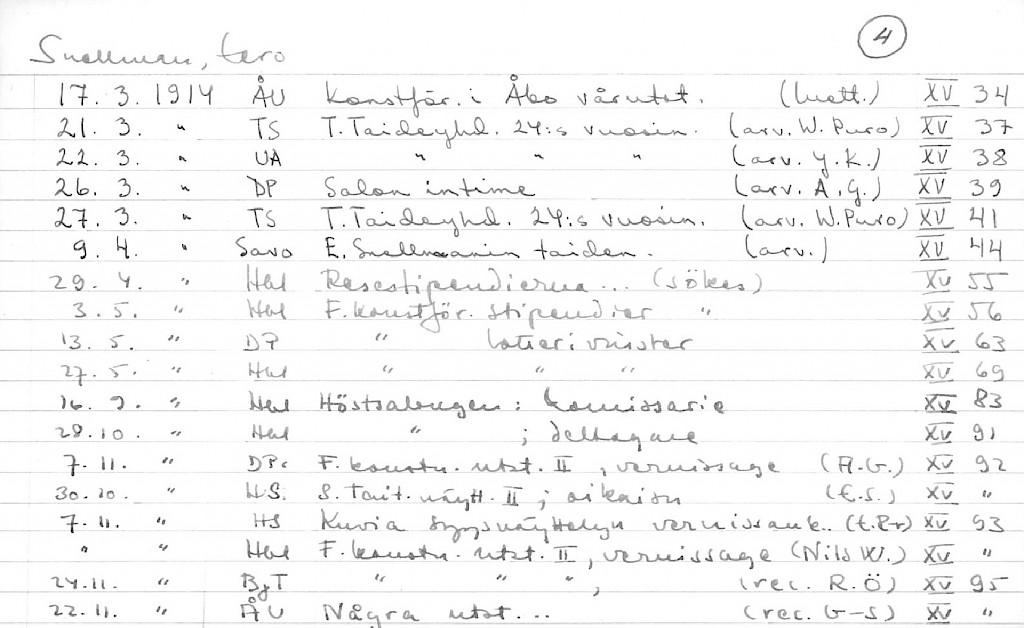 4
Snellman, Eero
17. 3. 1914 ÅU Konstför. i Åbo vårutst. (nott.) XV 34
21. 3. " TS T. Taideyhd. 24:s vuosin. (arv. W. Puro) XV 37
22. 3. " UA " " " (arv. Y.K.) XV 38
26. 3. " DP Salon intime (arv. A.G.) XV 39
27. 3. " TS T. Taideyhd. 24:s vuosin. (arv. W. Puro) XV 41
9. 4. " Savo E. Snellmanin taiden. (arv.) XV 44
29. 4. " Hbl Resestipendierna... (sökes) XV 55
3. 5. " Hbl F. konstför. stipendier " XV 56
13. 5. " DP " lotterivinster XV 63
27. 5. " Hbl " " " XV 69
16. 9. " Hbl Höstsalongen: komissarie XV 83
28. 10. " Hbl " ; deltagare XV 91
7. 11. " DP F. konstn. utst. II, vernissage (A.G.) XV 92
30. 10. " H.S. S. Tait. näytt. II; aikaisu (E.S.) XV "
7. 11. " HS Kuvia syysnäyttelyn vernissank.. (E.R-r) XV 93
" " Hbl F. konstn. utst. II, vernissage (Nils W.) XV "
24. 11. " ByT " " ", (rec. R.Ö) XV 95
22. 11. " ÅU Några utst... (rec. G-S) XV "